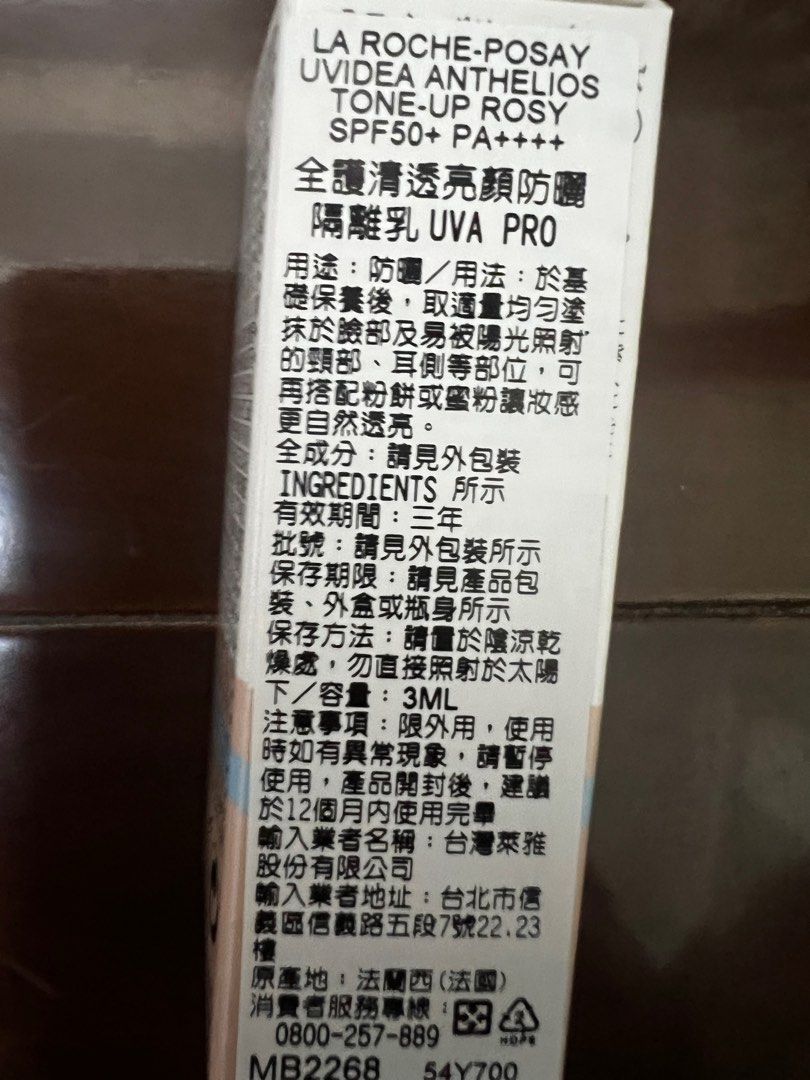 LA ROCHE-POSAY
UVIDEA ANTHELIOS
TONE-UP ROSY
SPF50+ PA++++
全護清透亮顏防曬
隔離乳 UVA PRO
用途：防曬／用法：於基
礎保養後，取適量均勻塗
抹於臉部及易被陽光照射
的頸部、耳側等部位，可
再搭配粉餅或蜜粉讓妝感
更自然透亮。
全成分：請見外包裝
INGREDIENTS 所示
有效期間：三年
批號：請見外包裝所示
保存期限：請見產品包
裝、外盒或瓶身所示
保存方法：請置於陰涼乾
燥處，勿直接照射於太陽
下／容量：3ML
注意事項：限外用，使用
時如有異常現象，請暫停
使用，產品開封後，建議
於12個月內使用完畢
輸入業者名稱：台灣萊雅
股份有限公司
輸入業者地址：台北市信
義區信義路五段7號22.23
樓
原產地：法蘭西(法國)
消費者服務專線：
0800-257-889
HDPE
MB2268 54Y700